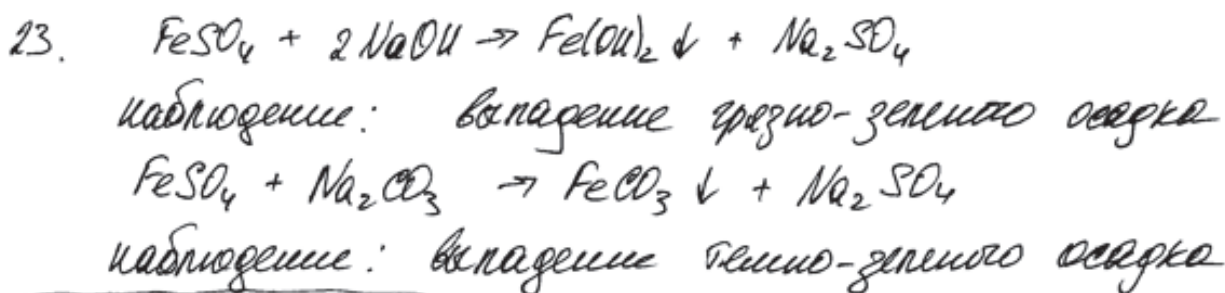 23. FeSO₄ + 2 NaOH → Fe(OH)₂ ↓ + Na₂SO₄
наблюдение: выпадение грязно-зеленого осадка
FeSO₄ + Na₂CO₃ → FeCO₃ ↓ + Na₂SO₄
наблюдение: выпадение темно-зеленого осадка